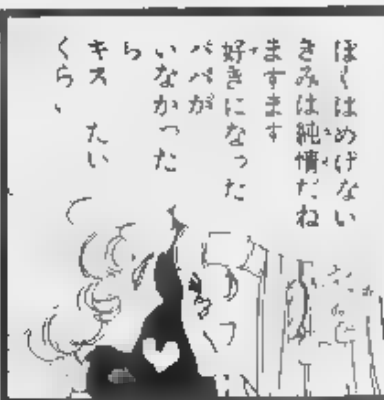 ぼくはめげない
きみは純情だね
ますます
好きになった
パパが
いなかった
ら
キス たい
くらい